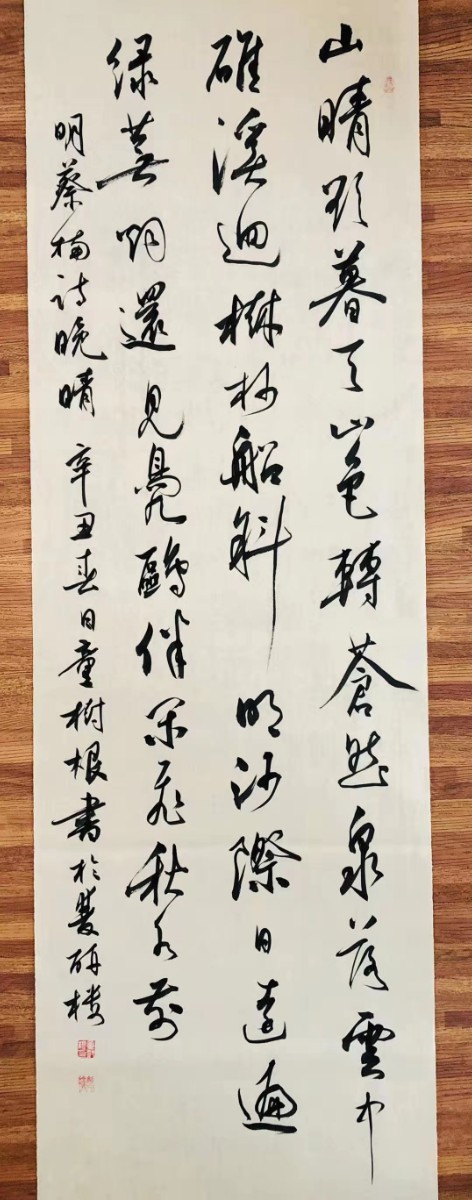 山晴欲暮天山色轉蒼然泉落雲中
碓溪迴樹杪船斜明沙際日遠遍
绿蕪烟還見鳧鷗伴閒飛秋水前
明蔡楠詩晚晴 辛丑春日童樹根書於研楼